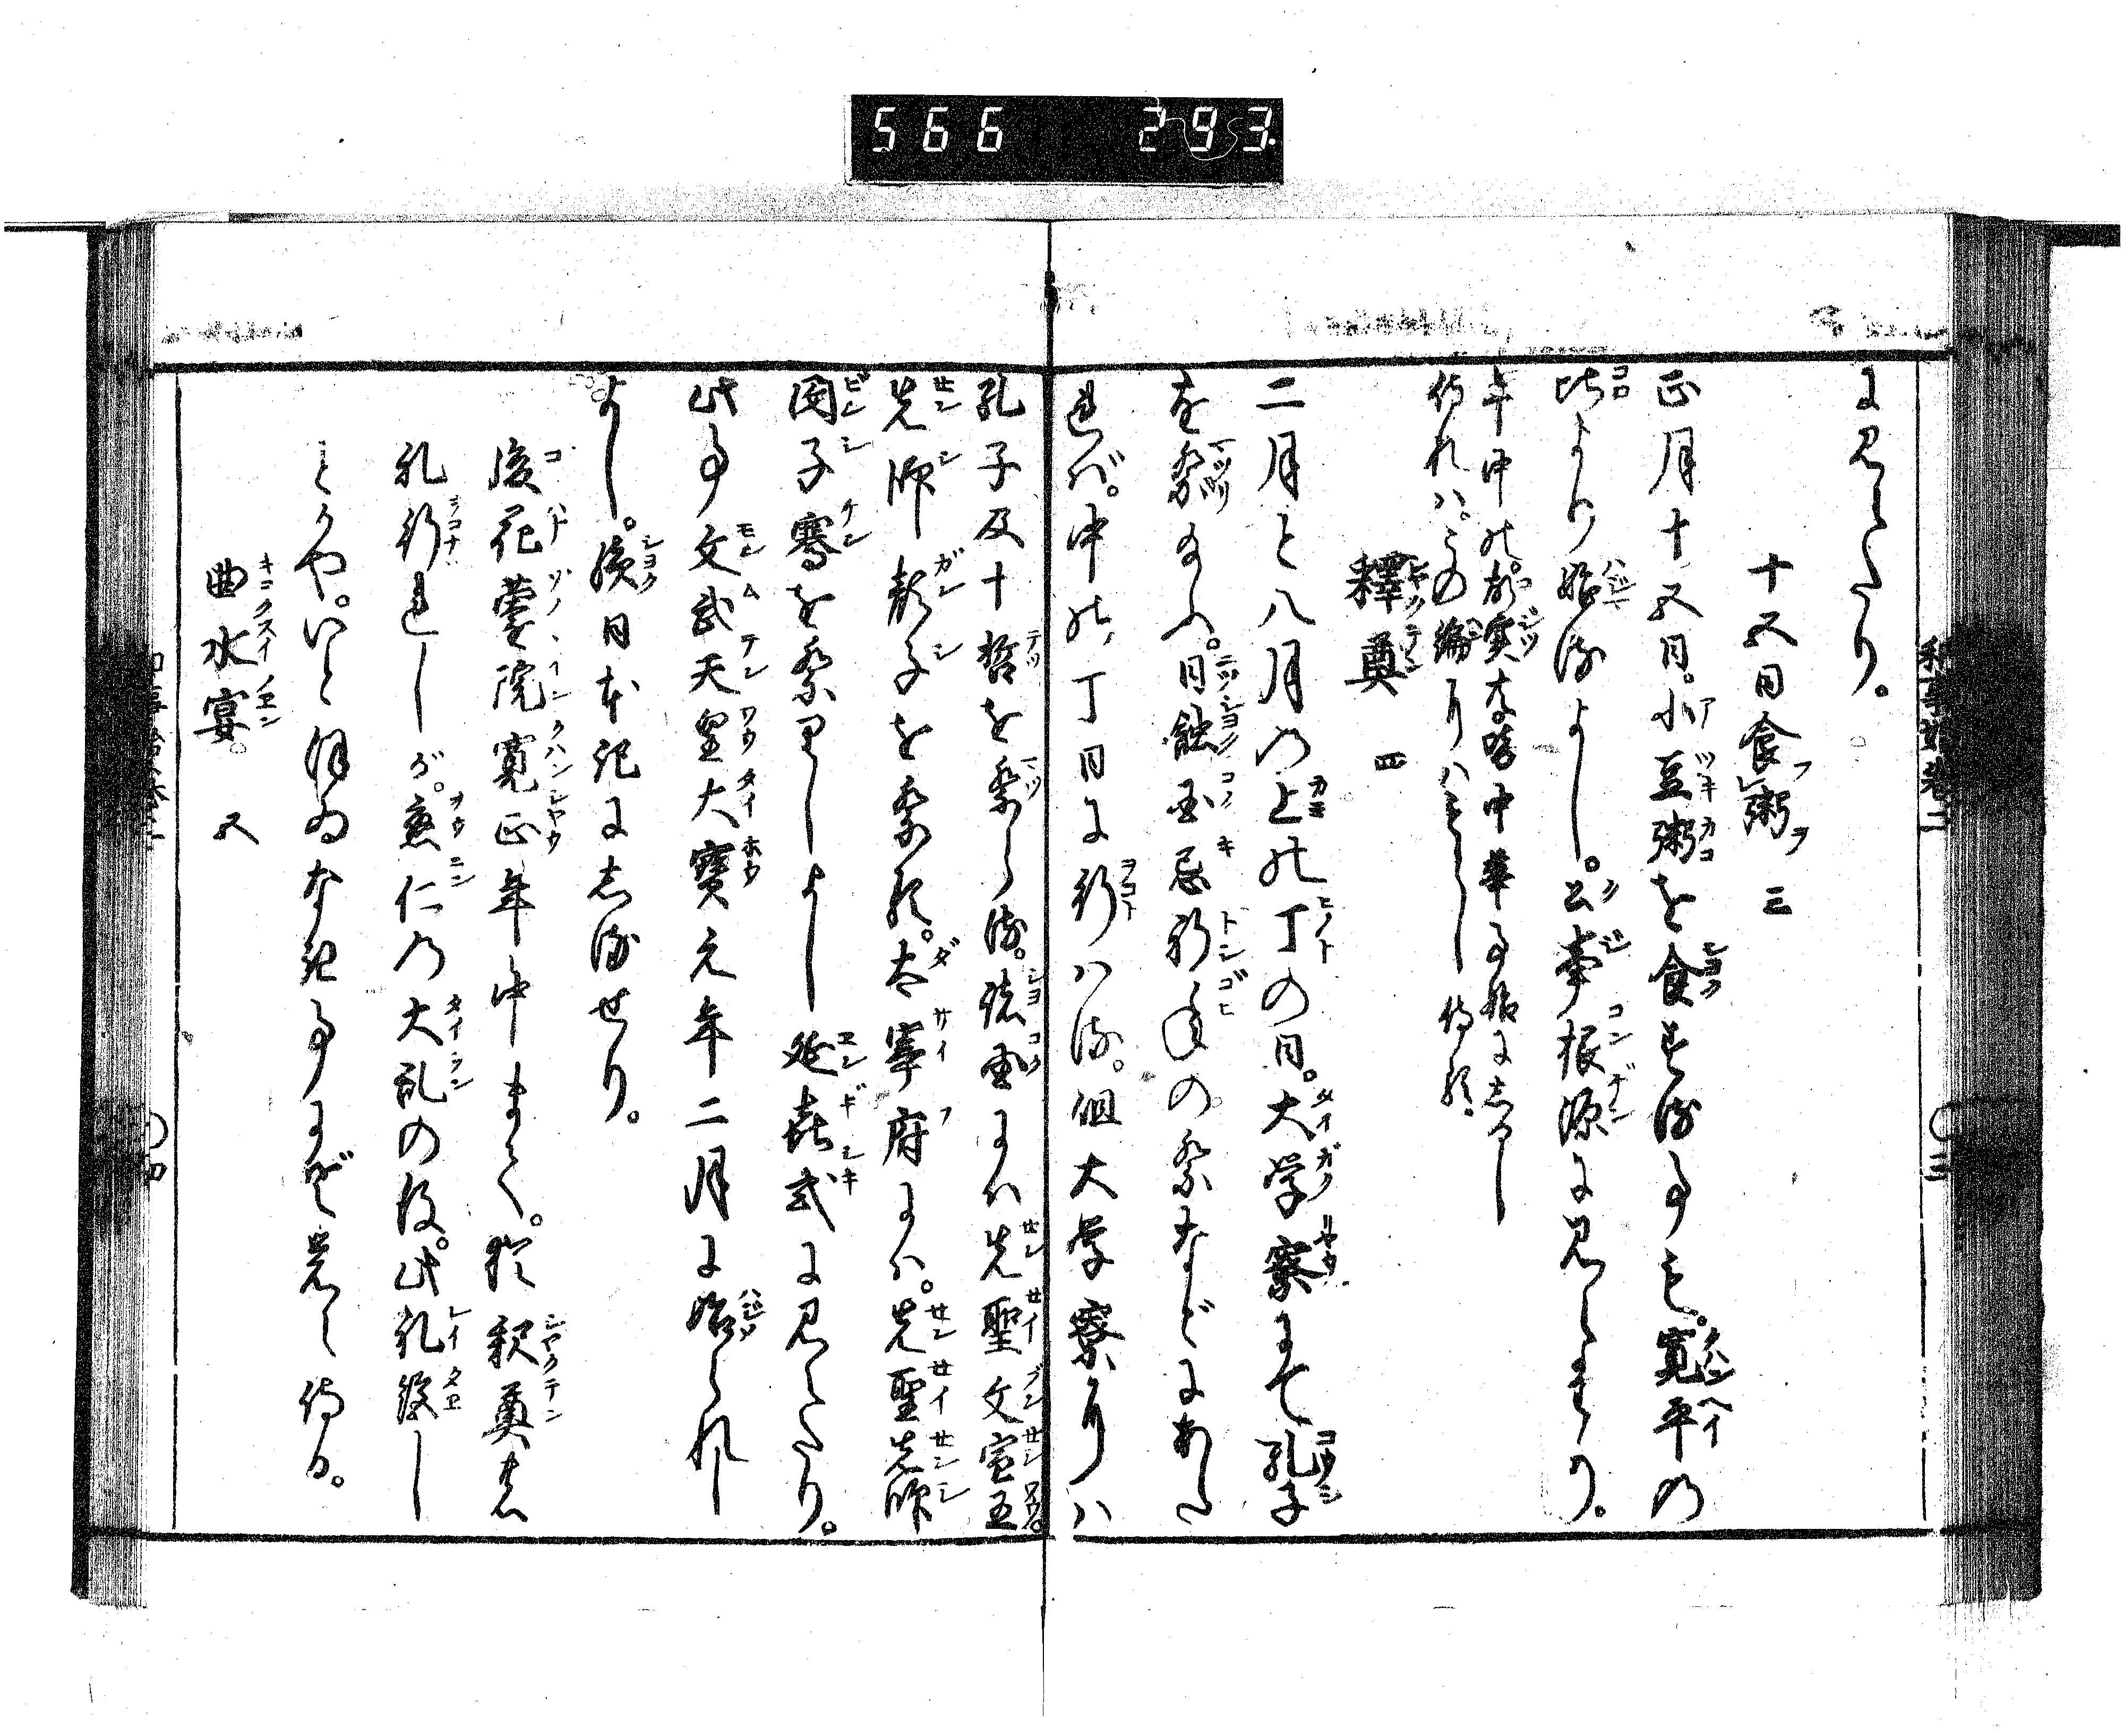 566 293
に見えたり。
十五日食粥 三
正月十五日。小豆粥を食する事も。寛平の
比より始るよし。公事根源に見えたり。
年中の故実大略中華事始にしるし
侍れハ。この編にハもらし侍る。
釋奠 四
二月と八月の上の丁の日。大学寮にて孔子
を祭り給ふ。日蝕国忌祈年の祭などにあた
れバ。中の丁日に行ハる。但大学寮にハ
孔子及十哲を祭らる。諸国にハ先聖文宣王。
先師顔子を祭る。太宰府にハ。先聖先師
閔子騫を祭りしよし延喜式に見えたり。
此事文武天皇大寳元年二月に始られし
よし。續日本紀にしるせり。
後花薗院寛正年中まで。猶釈奠の
礼行れしが。應仁の大乱の後。此礼絶し
とかや。いと
なき事にぞ覚え侍る。
曲水宴。 五